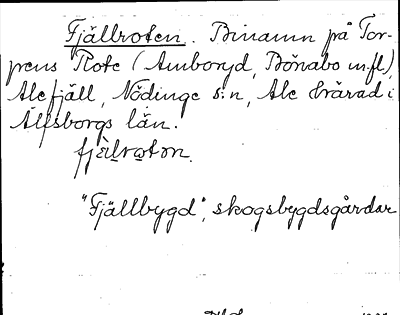 Fjällroten. Binamn på Tor-
pens Rote (Amboryd, Bönabo m.fl.)
Alefjäll, Nödinge s:n, Ale härad i
Älfsborgs län.
fjä̀lrotɒn.
"Fjällbygd", skogsbygdsgårdar